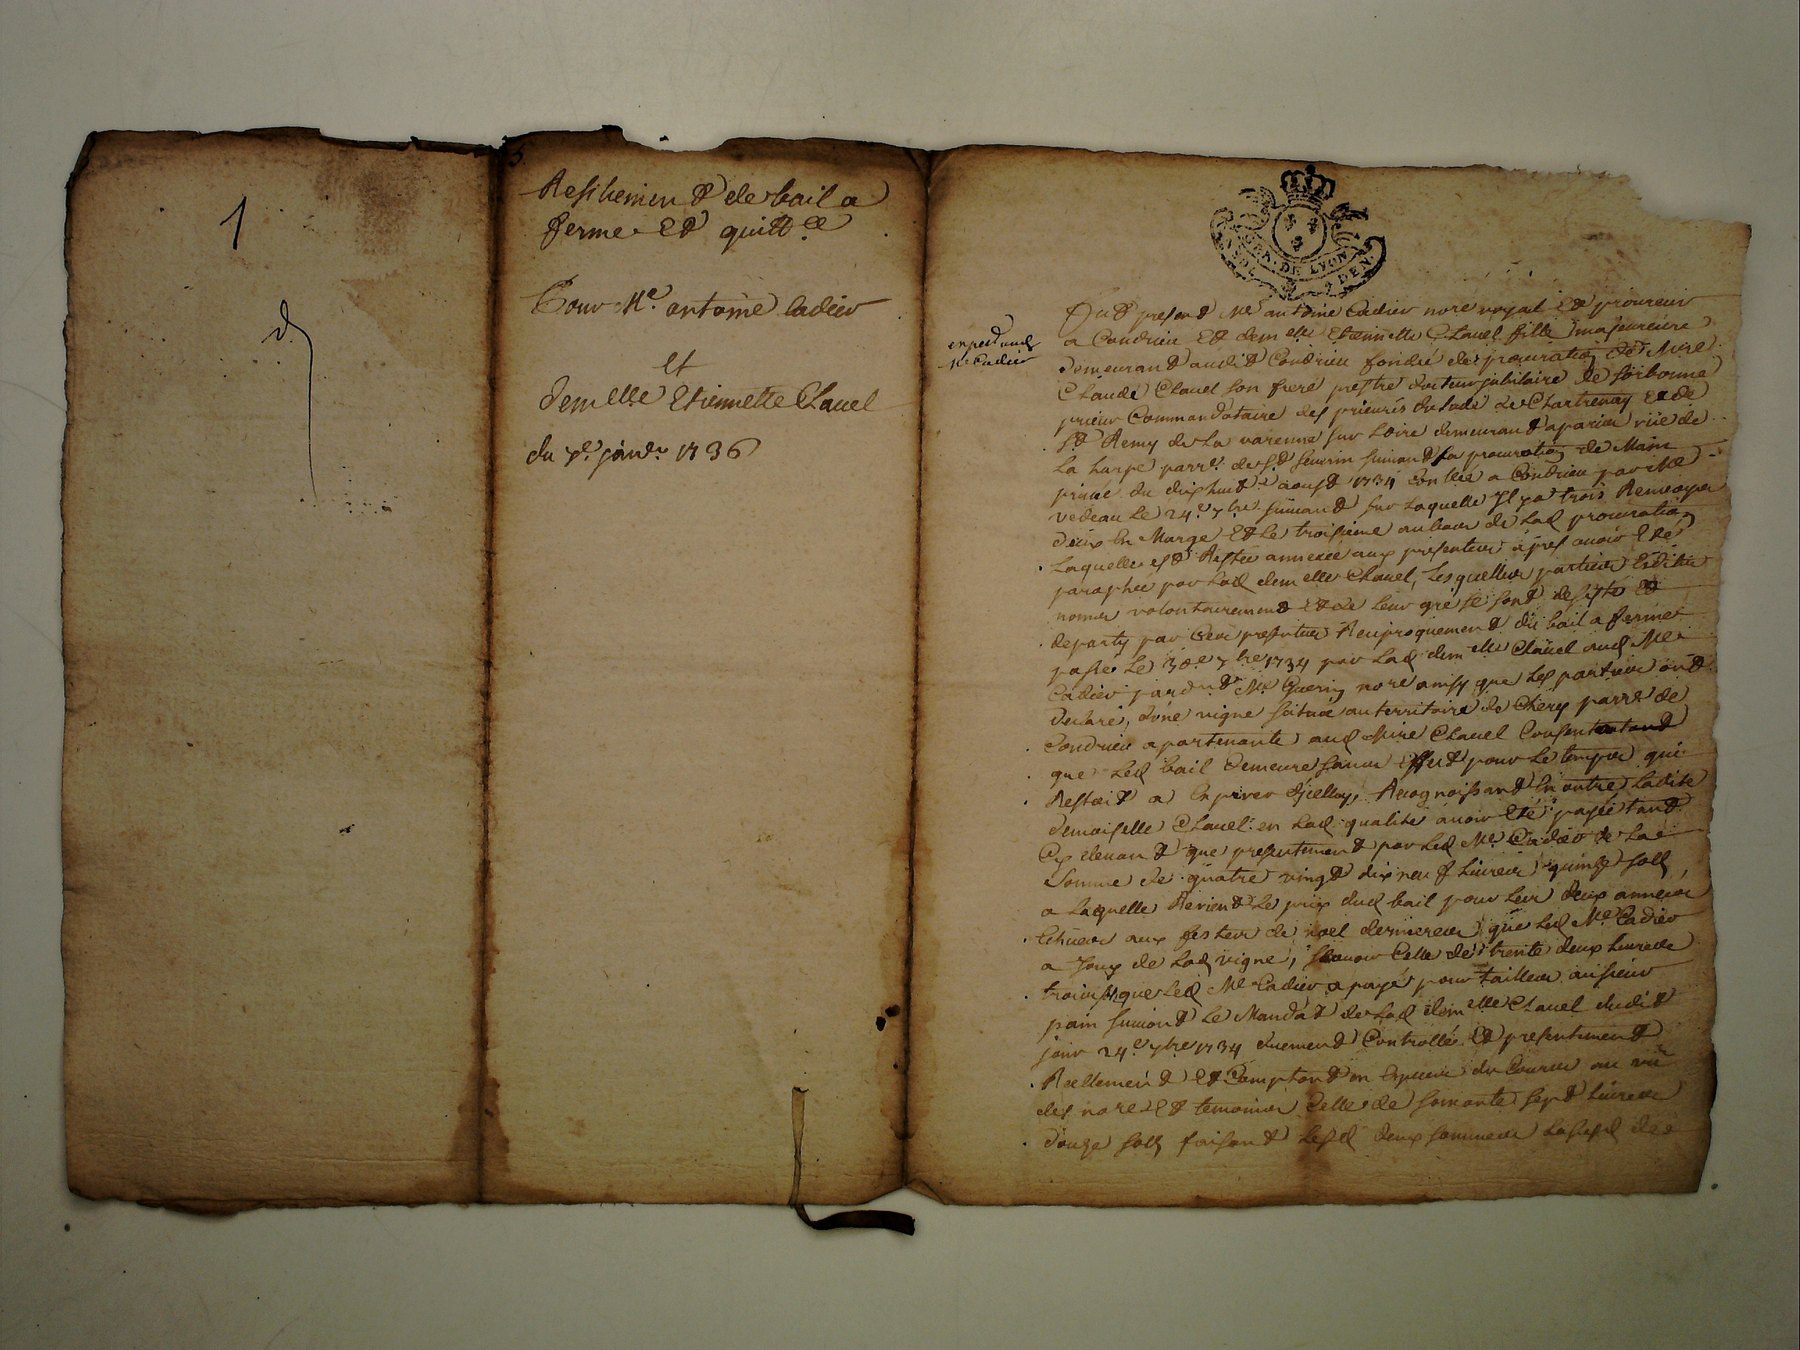 1
d.
5
Resiliemen d de bail a
ferme Ed quitt.ce
Pour Me. antoine Cadier
et
demelle Etiennette Chauel
du janer. 1736
GEN. DE LYON
SOL DEN.
exped aud
Me Cadier
presend Me antoine Cadier nore royal Ed procureur
a Condrieu Ed demelle Etiennette Chauel fille majeure
demeurand audid Condrieu fondée de procuration de Mre
Claude Chauel son frere prestre docteur jubilaire de Sorbonne
prieur Commandataire des prieurés de Chartrenay Ed de
St Remy de la varenne sur Loire demeurand a paris rue de
la harpe parre. de St Seuerin suiuand sa procuration de Main
priuée du dixhuid aousd 1734 Con lée a Condrieu par Me
vedeau le 24.e 7bre suiuand sur laquelle Il y a trois Renuoyes
deux En Marge Ed le troisieme au bas de lad procuration
laquelle esd Restée annexée aux presentes apres auoir Eté
paraphée par lad demelle Chauel, Lesquelles parties
nomes volontairemend Ed de leur gré se sond desisté Ed
departy par Ces presentes Reciproquemend du bail a ferme
passé le 30e 7bre 1734 par lad demelle Chauel aud Me
Cadier pard Me Guerin nore ainsy que les parties ond
declaré, d'une vigne située au territoire de Chery parre de
Condrieu apartenante aud Mire Chauel
que led bail demeure sans effed pour le temps qui
Restoid a Expirer d'jcelluy, Recognoissand En outre ladite
demoiselle Chauel en lad qualité auoir Eté payée tand
Cy deuand que presentemend par led Me Cadier de la
Somme de quatre vingd dix neuf liures quinze sols
a laquelle Reuiend le prix dud bail pour les deux années
Echues aux festes de noel dernieres que led Me Cadier
a Jouy de lad vigne, scauoir Celle de trente deux liures
trois s. que led Me Cadier a payé pour tailles au sieur
pain suiuand le Mandad de lad demelle Chauel dudid
jour 24.e 7bre 1734 duemend Controllé Ed presentemend
Reellemend Ed Comptand en Especes du Cours au vu
des nores Ed temoins Celle de soixante sepd liures
douze sols faisand lesd deux sommes